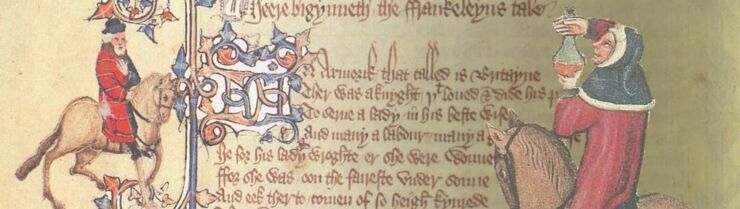 Heere bigynneth the ffrankeleyns tale
In Armorik that called is Britayne
Ther was a knyght þt loued & dide his
To serue a lady in his beste wise
And many a labour many a
He for his lady wroghte er she were wonne
ffor she was oon the faireste vnder sonne
And eek therto comen of so heigh kynrede